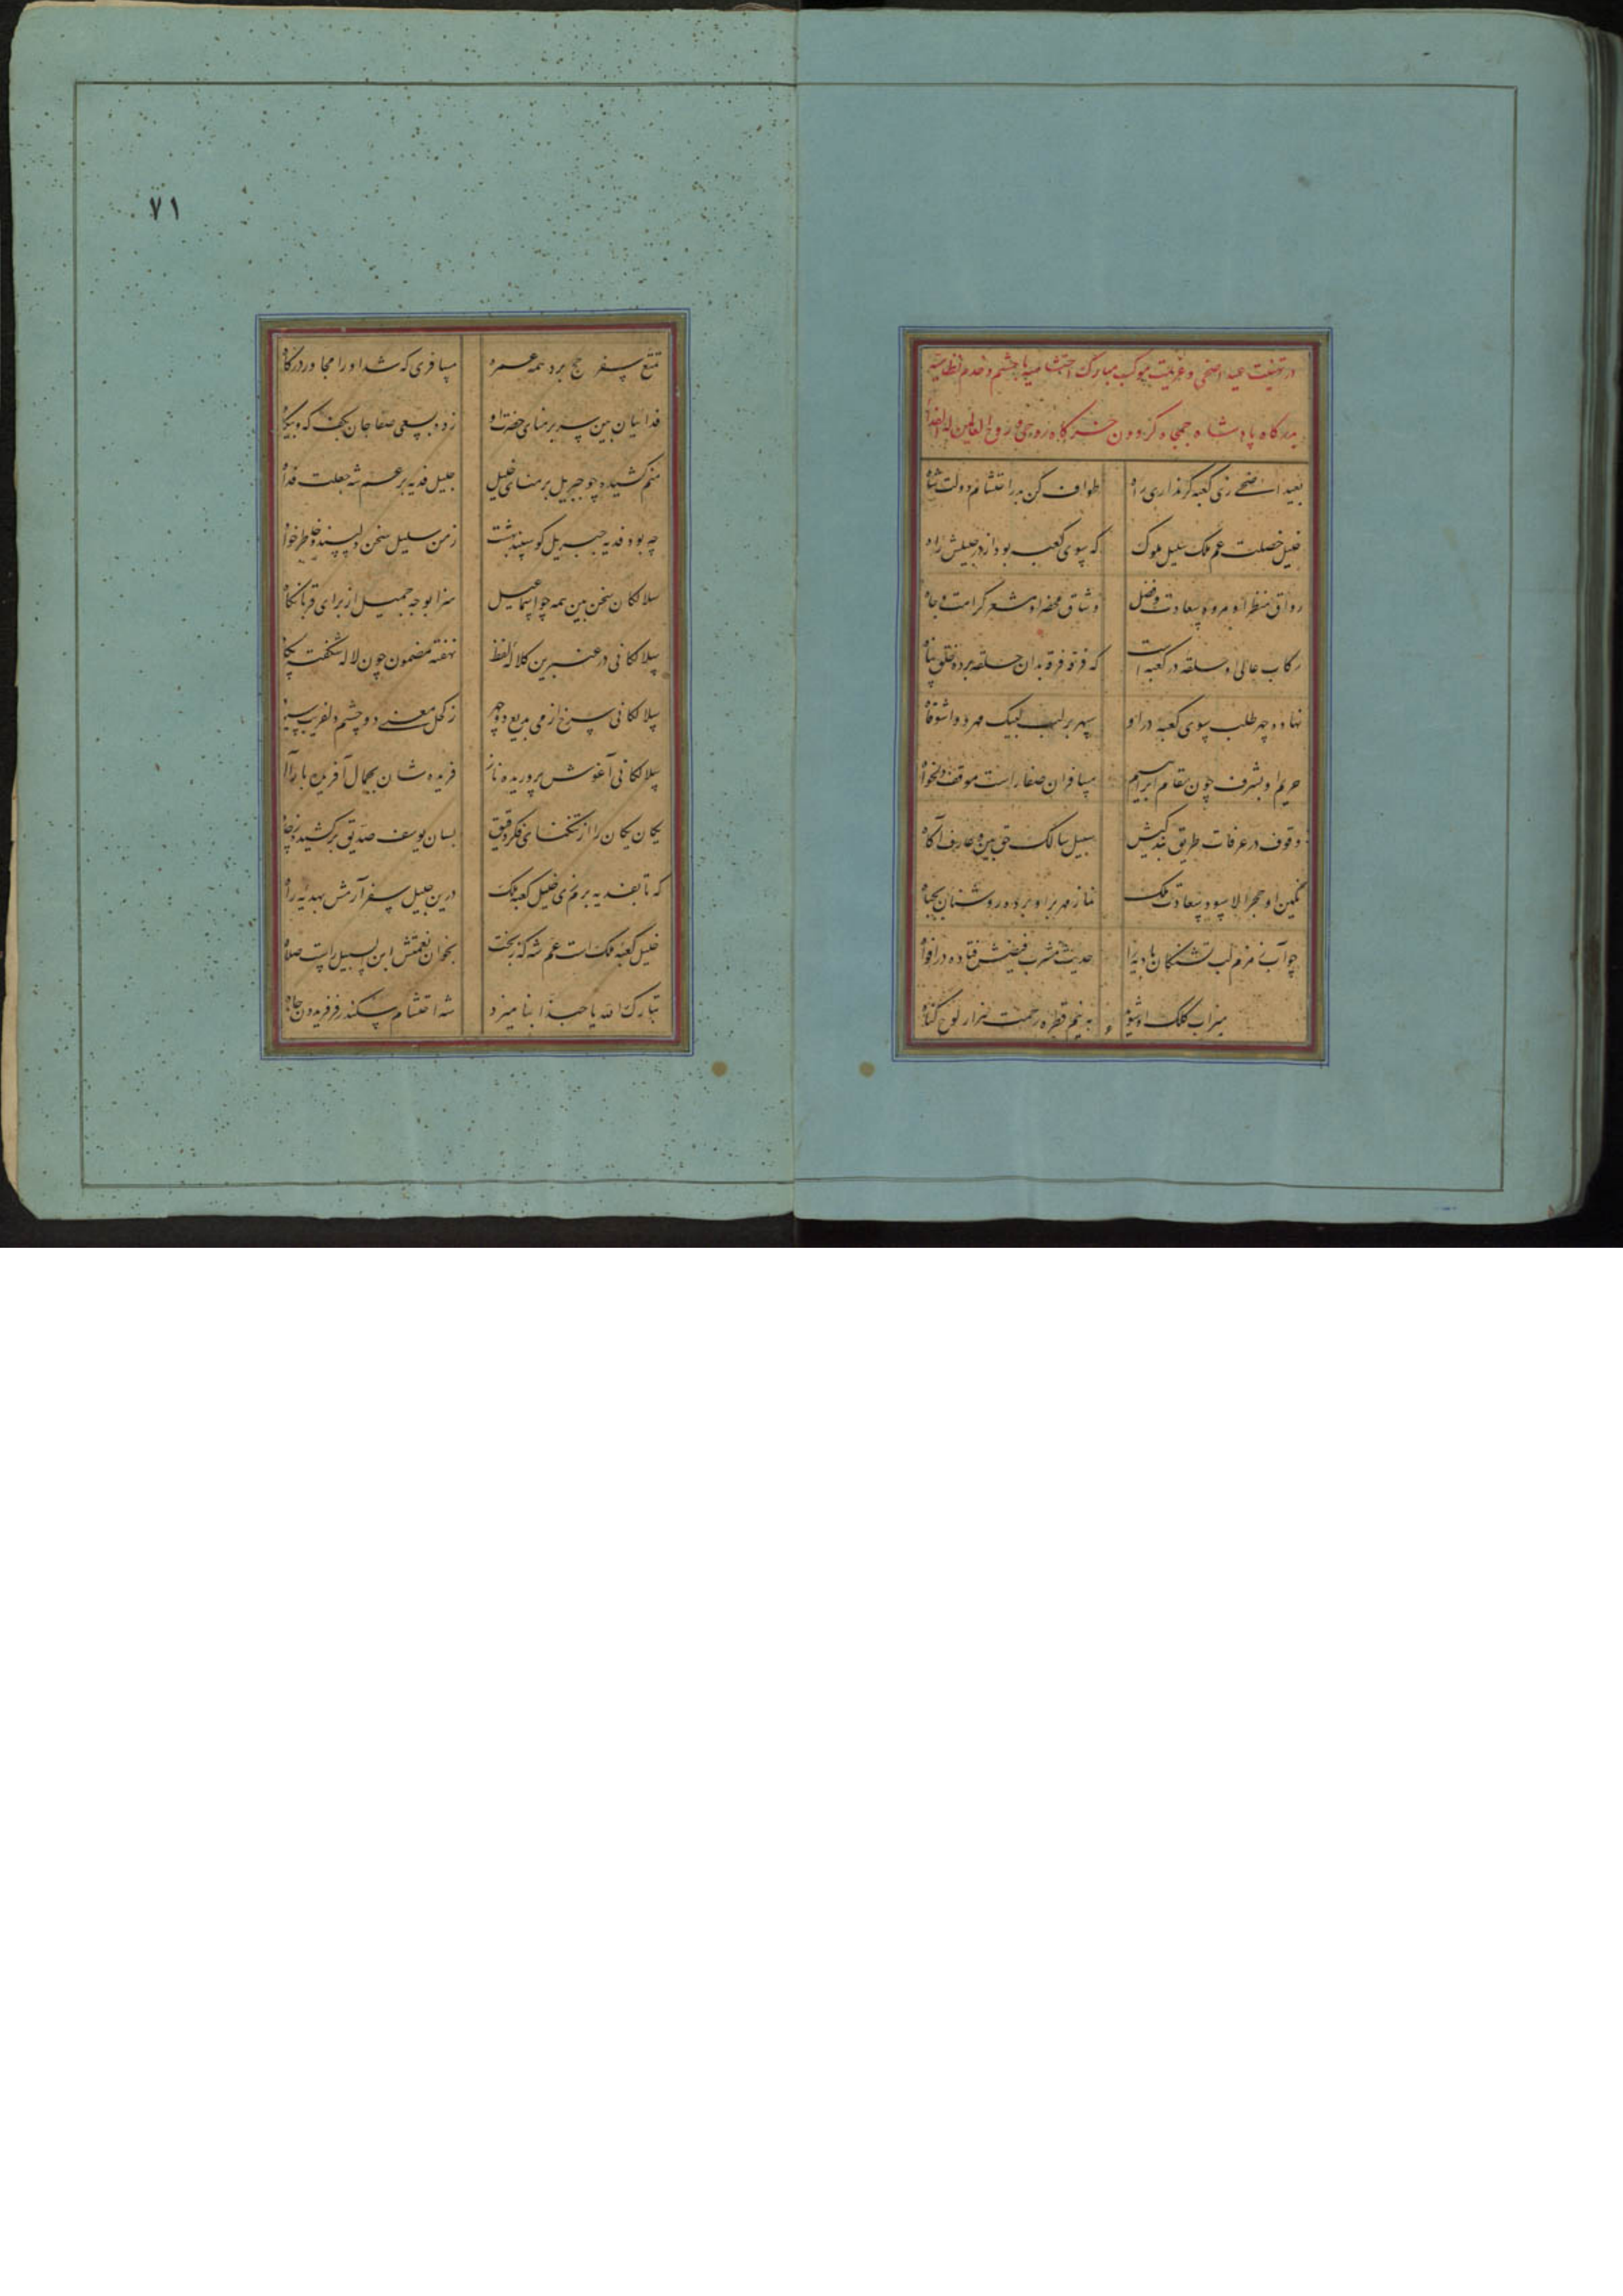 در تهنیت عید اضحی و عزیمت موکب مبارک احتشامیه با حشم و خدم نظامیه
بدرگاه پادشاه جمجاه گردون خرگاه روحی و روح العالمین له الفداه
بعید اضحی زی کعبه گر نداری راه
طواف کن در احتشام دولت شاه
خلیل خصلت عم ملک سلیل ملوک
که سوی کعبه بود از در جلیلش راه
رواق منظر او مروه سعادت و فضل
وثاق محضر او مشعر کرامت و جاه
رکاب عالی او حلقه در کعبه است
که فرقه فرقه بدان حلقه برده خلق پناه
نهاده چهر طلب سوی کعبه در او
سپهر بر لب لبیک مهر و واشوقاه
حریم او بشرف چون مقام ابراهیم
مسافران صفا راست موقف دلخواه
وقوف در عرفات طریق بندگیش
سبیل سالک حق بین و عارف آگاه
نگین او حجر الاسود سعادت ملک
نماز مهر بر او برده روشنان بجباه
چو آب زمزم لب تشنگان بادیه را
حدیث مشرب فیضش فتاده در افواه
میزاب کلک او شوید
به نیم قطره رحمت هزار لوح گناه
۷۱
تمتع سفر حج برد همه عمره
مسافری که شد او را مجاور درگاه
فدائیان بین سر بر منای حضرت او
زده بسعی صفا جان بکف که و بیگاه
منم کشیده چو جبریل بر منای خلیل
جلیل فدیه بر عم شه جعلت فداه
چه بود فدیه جبریل گوسپند بهشت
ز من سلیل سخن دلپسند و خاطرخواه
سلالگان سخن بین همه چو اسماعیل
سزا بوجه جمیل از برای قربانگاه
سلالگانی در عنبرین کلاله لفظ
نهفته مضمون چون لاله شکفت پگاه
سلالگانی سرخ از می بدیع دو چهر
ز کحل معنی دو چشم دلفریب سیاه
سلالگانی آغوش پروریده ناز
فریده شان بجمال آفرین بارالله
یکان یکان را از تنگنای فکر دقیق
بسان یوسف صدیق برکشیده ز چاه
که تا بفدیه برم زی خلیل کعبه ملک
درین جلیل سفر آرمش بهدیه راه
خلیل کعبه ملک است عم شه که ز بخت
بخوان نعمتش ابن السبیل راست صلاه
تبارک الله یا حبذا بنامیزد
شه احتشام سکندر فر فریدون جاه